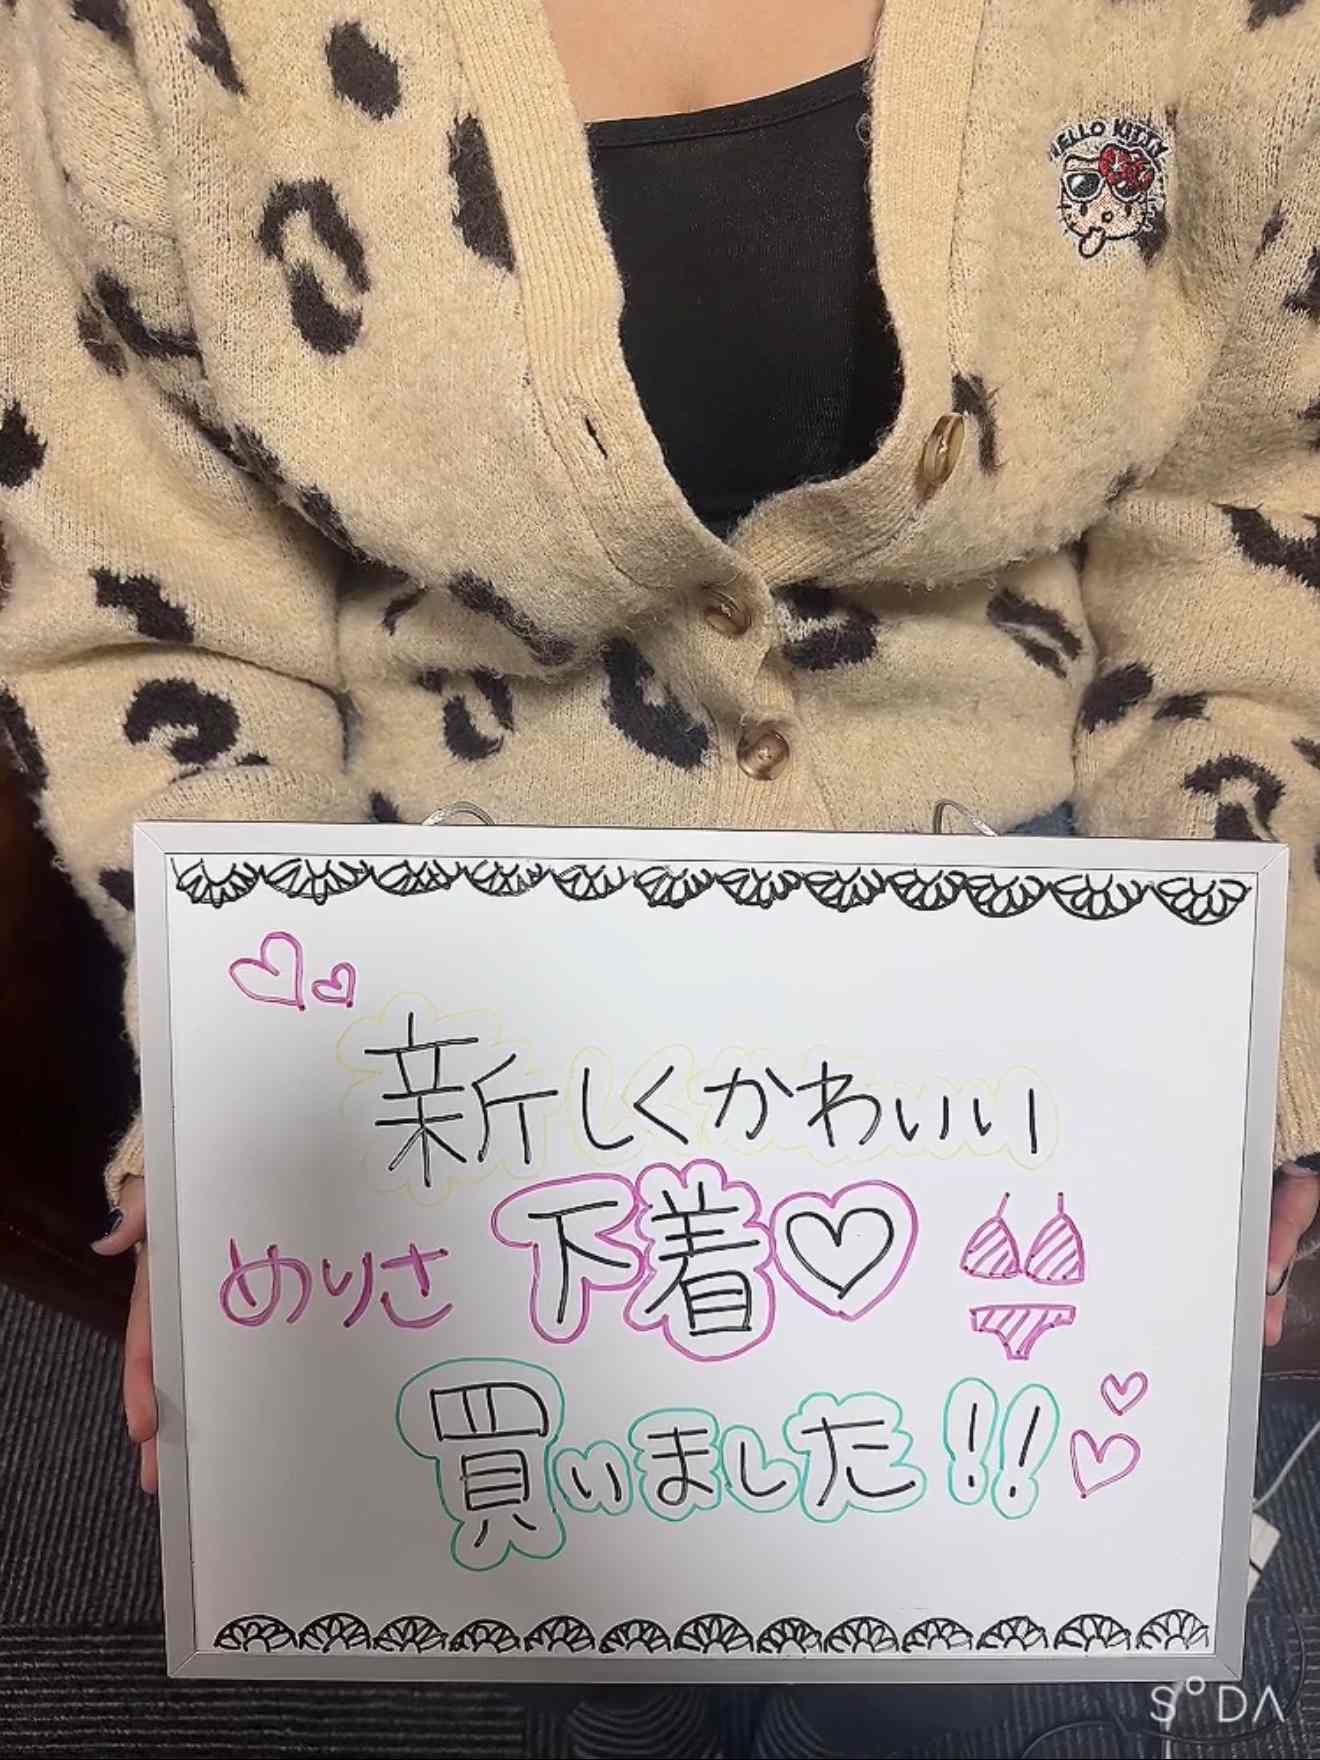 HELLO KITTY
新しくかわいい
めりさ 下着♡
買いました!!
SODA